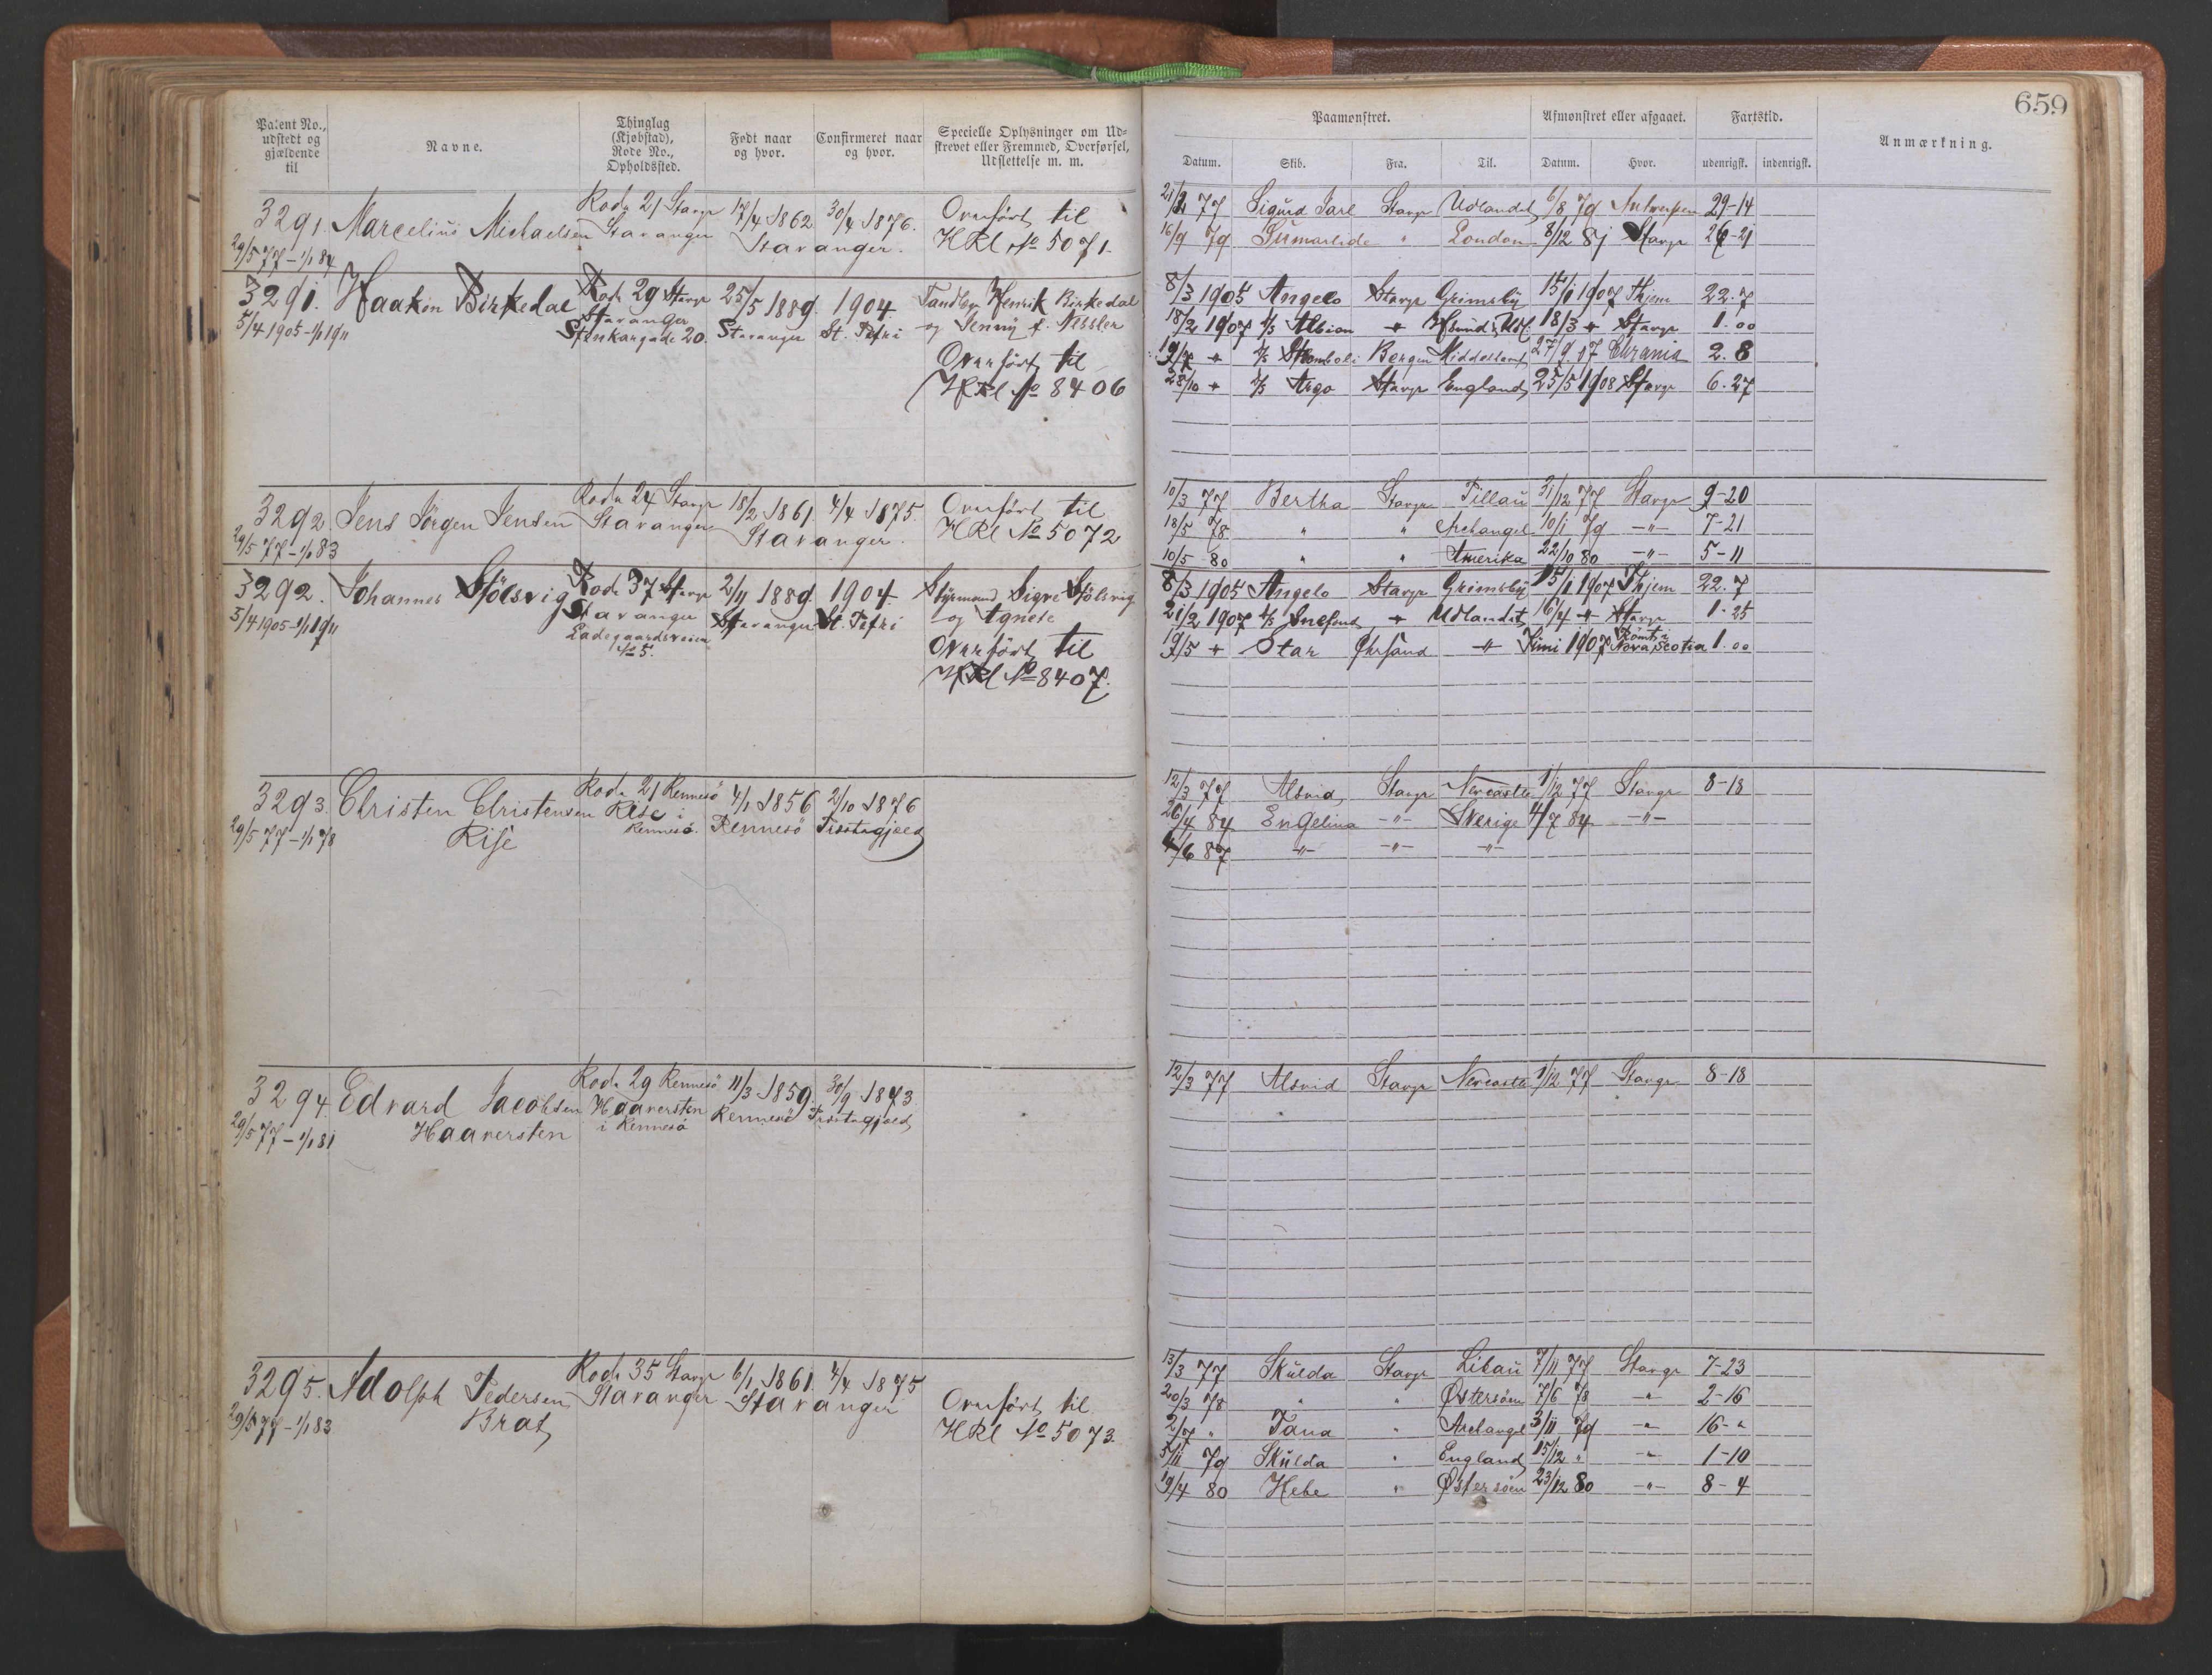 659
Patent No., udstedt og gjældende til
Navne.
Thinglag (Kjøbstad), Rode No., Opholdssted.
Født naar og hvor.
Confirmeret naar og hvor.
Specielle Oplysninger om Udskrevet eller Fremmed, Overførsel, Udslettelse m. m.
Paamønstret.
Afmønstret eller afgaaet.
Fartstid.
Anmærkning.
Datum. Skib. Fra. Til. Datum. Hvor. udenrigsk. indenrigsk.
3291. Marcelius Michaelsen Rode 21 Stavgr 17/4 1862 30/4 1876. Overført til
29/5 77 – 1/1 84 Stavanger Stavanger. HRl No 5071.
21/2 77 Sigurd Jarl Stavgr Udlandet 6/8 79 Antwerpen 29-14
16/9 79 Sumarlide " London 8/12 81 Stavgr 26-21
3291. Haakon Birkedal Rode 29 Stavgr 25/5 1889. 1904. Tandlæge Henrik Birkedal
5/4 1905 – 1/1 1911 Stavanger Stavanger St. Petri og Jenny f. Nessler
Stenkargade 20.
Overført til
HRl No 8406
8/3 1905 Angelo Stavgr Grimsby 15/1 1907 Thjem 22.7
18/2 1907 Albion 18/3 Stavgr 1.00
19/7 Stromboli Bergen Middelhavet 27/9 07 2.8
28/10 Argo Stavgr England 25/5 1908 Stavgr 6.27
3292. Jens Jörgen Jensen Rode 24 Stavgr 18/2 1861. 4/4 1875. Overført til
29/5 77 – 1/1 83 Stavanger Stavanger. HRl No 5072
10/3 77 Bertha Stavgr Pillau 31/12 77 Stavgr 9-20
18/5 78 " " Archangel 10/1 79 -"- 7-21
10/5 80 " " Amerika 22/10 80 -"- 5-11
3292. Johannes Stölsvig Rode 37 Stavgr 2/11 1889. 1904. Styrmand Sigve Stölsvig
5/4 1905 – 1/1 1911 Stavanger Stavanger St. Petri og Agnete
Ladegaardsveien No 5.
Overført til
HRl No 8407.
8/3 1905 Angelo Stavgr Grimsby 15/1 1907 Thjem 22.7
21/2 1907 Snefond Udlandet 16/4 Stavgr 1.25
19/5 Star Chrsand -"- Juni 1907 Rømt i Nova Scotia 1.00
3293. Christen Christensen Rode 21 Rennesö 4/1 1856 2/10 1876
29/5 77 – 1/1 78 Rise Rise i Rennesö. Rennesö
12/3 77 Alsvid Stavgr Newcastle 1/12 77 Stavgr 8-18
26/4 84 Engelina -"- Sverige 4/7 84 -"-
4/6 87 -"- -"- -"-
3294. Edvard Jacobsen Rode 29 Rennesö 11/3 1859. 30/9 1873.
29/5 77 – 1/1 81 Haaversten Haaversten i Rennesö Rennesö
12/3 77 Alsvid Stavgr Newcastle 1/12 77 Stavgr 8-18
3295. Adolph Pedersen Rode 35 Stavgr 6/1 1861. 4/4 1875
29/5 77 – 1/1 83 Brat Stavanger Stavanger Overført til
HRl No 5073.
13/3 77 Skulda Stavgr Libau 7/11 77 Stavgr 7-23
20/3 78 " " Østersøen 7/6 78 -"- 2-16
2/7 " Tana " Archangel 3/11 79 -"- 16-"
5/11 79 Skulda " England 15/12 " -"- 1-10
19/4 80 Hebe " Østersøen 23/12 80 -"- 8-4